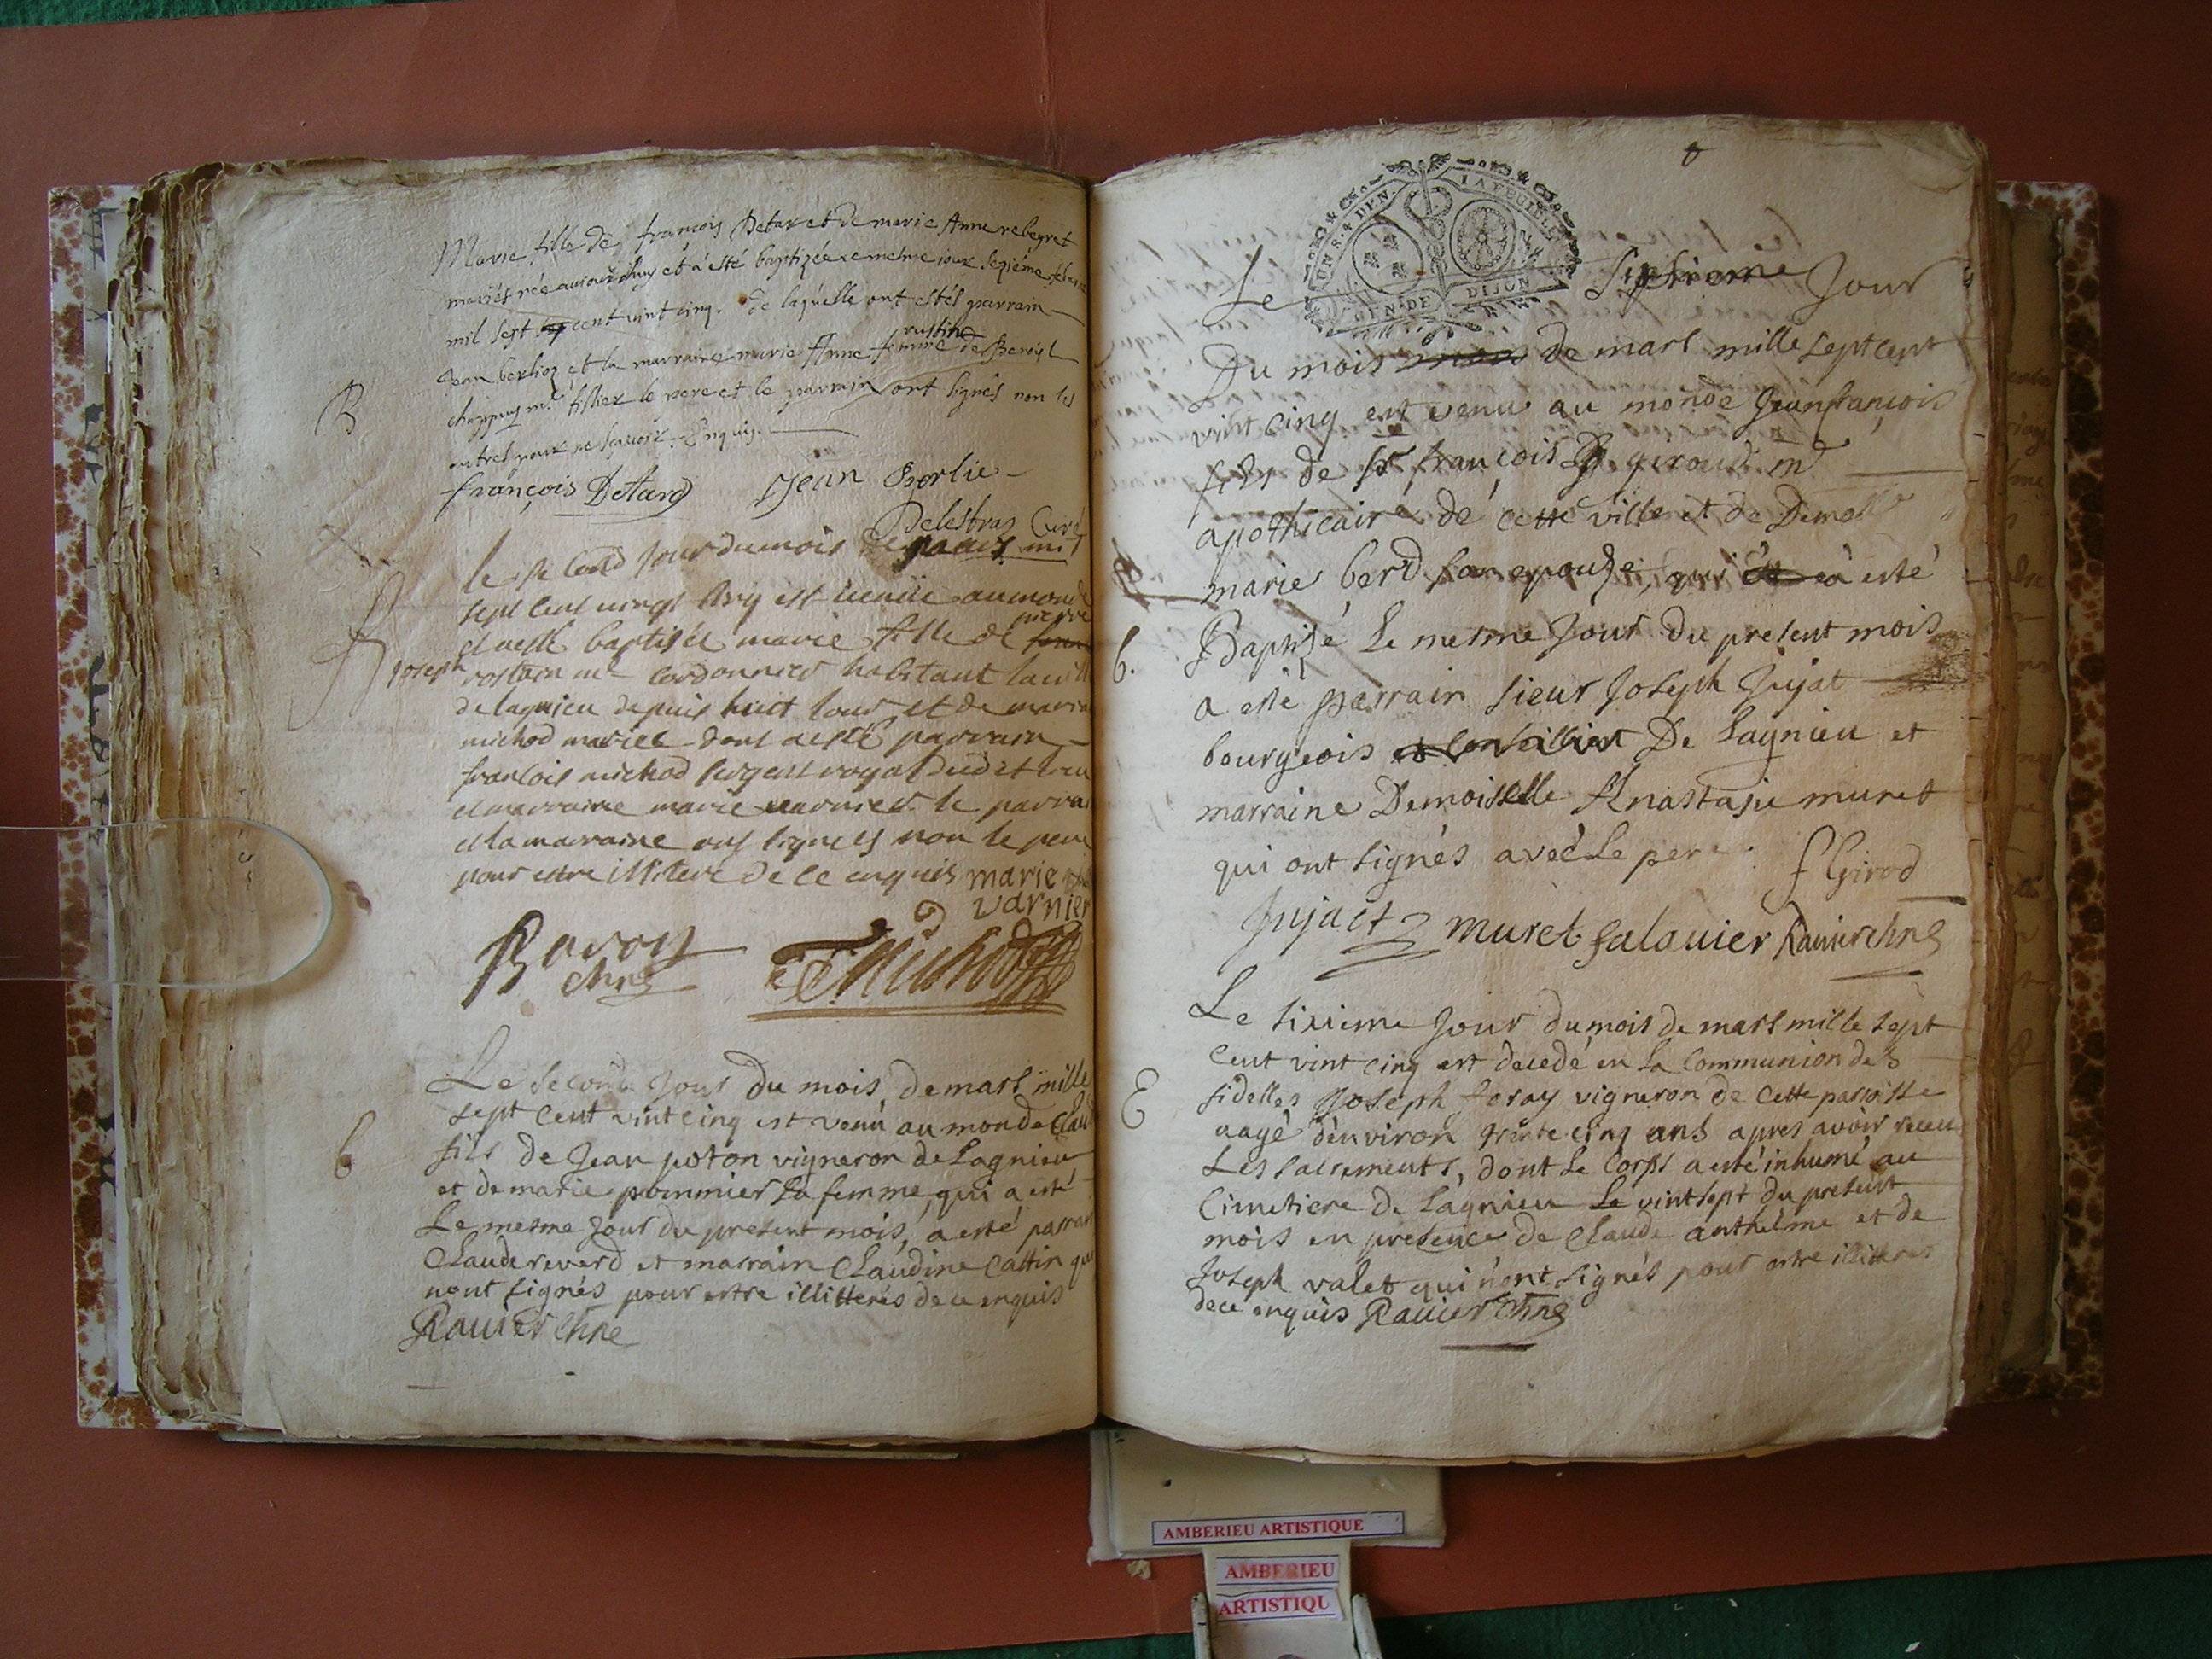 Marie fille de françois Detar et de marie Anne rebeyret
mariés née aujourdhuy et a esté baptizée ce mesme jour sezième
mil sept cent vint cinq. de laquelle ont estés parrain
Jean berlioz et la marraine marie Anne femme de
rustine
chappuy me le pere et le parrain ont signés non les
autres pour ne sçavoir. Enquis.
B
françois Detard Jean Berlie
Delestras Curé
le second jour du mois de mars mil
sept cens vingt cinq est venüe au monde
et a esté baptisée marie fille de
pierre
joseph rostain me cordonnier habitant la ville
de lagnieu depuis huict jour et de marie
michod mariee dont a esté parrain
francois michod sergent royal dud
et marraine marie varnier le parra
et la marraine ont signees non le pere
pour estre illitere de ce enquis marie
varnier
Ravon
chne
Michod
Le second jour du mois de mars mille
sept cent vint cinq est venu au monde Clau
b
fils de Jean poton vigneron de Lagnieu
et de marie pommier sa femme, qui a esté
Le mesme jour du present mois, a esté parrai
Claude reverd et marrain Claudine Cattin qu
nont signés pour estre illitterés de ce enquis
Ravier Chne
UN S. 4 DEN. LA FEUILLE
GEN. DE DIJON
Le Septieme Jour
Du mois de mars mille sept cent
vint cinq est venu au monde Jean françois
fils de sr françois giroud me
apothicaire de cette ville et de Demelle
marie berd son epouse, qui a esté
b.
Baptisé Le mesme Jour du present mois
a esté parrain sieur Joseph Jujat
bourgeois De Lagnieu et
marraine Demoiselle Anastasie muret
qui ont signés avec le pere.
f Girod
Jujact muret salavier Ravier chne
Le sixieme Jour du mois de mars mille sept
cent vint cinq est decedé en La Communion des
E
fidelles Joseph foray vigneron de cette parroisse
aagé d'environ trente cinq ans apres avoir receu
Les sacrements, dont Le Corps a esté inhumé au
Cimetiere de Lagnieu Le vint sept du present
mois en presence de Claude anthelme et de
Joseph valet qui n'ont signés pour estre illitteres
de ce enquis Ravier Chne
AMBERIEU ARTISTIQUE
AMBERIEU
ARTISTIQU